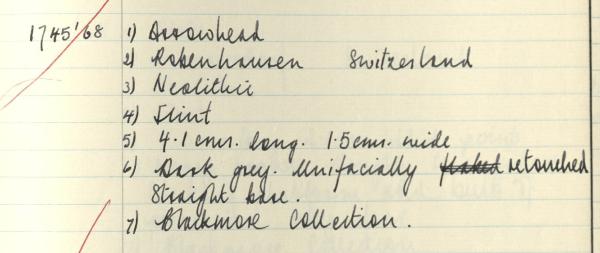 1745'68 1) Arrowhead
2) Robenhausen Switzerland
3) Neolithic
4) Flint
5) 4.1 cms. long. 1.5 cms. wide
6) Dark grey. Unifacially flaked retouched
Straight base.
7) Blackmore Collection.